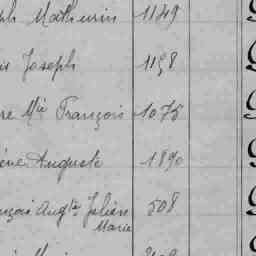 ph Mathurin 1149
is Joseph 1158
re Mie François 1075
ène Auguste 1890
nçois Augte Julien 508
Marie